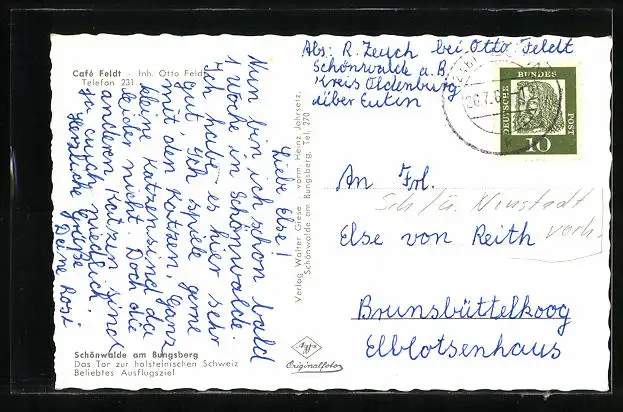 Café Feldt - Inh. Otto Feldt
Telefon 231
Liebe Else!
Nun bin ich schon bald
1 Woche in Schönwalde.
Ich habe es hier sehr
gut, Ich spiele gerne
mit den Katzen, Ganz
kleine Katzen sind da
leider nicht. Doch die
anderen Katzen sind
ja auch niedlich.
Herzliche Grüße
Deine Rosi
Schönwalde am Bungsberg
Das Tor zur holsteinischen Schweiz
Beliebtes Ausflugsziel
Verlag Walter Giese vorm. Heinz Jahrsetz.
Schönwalde am Bungsberg, Tel. 270
Agfa
Originalfoto
Abs: R. Zeuch bei Otto Feldt
Schönwalde a. B.
Kreis Oldenburg
über Eutin
DEUTSCHE BUNDES POST
10
An Frl.
Else von Reith
Brunsbüttelkoog
Elblotsenhaus